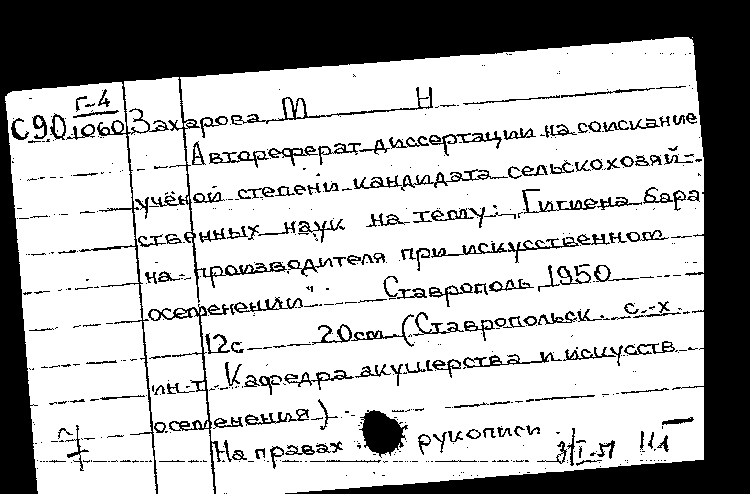 Г-4
С90 1060 Захарова, М Н
Автореферат диссертации на соискание
учёной степени кандидата сельскохозяй-
ственных наук на тему: „Гигиена бара
на-производителя при искусственном
осеменении". Ставрополь, 1950
12с 20см (Ставропольск. с.-х.
ин-т. Кафедра акушерства и искусств.
осеменения).
На правах рукописи.
3/I-51